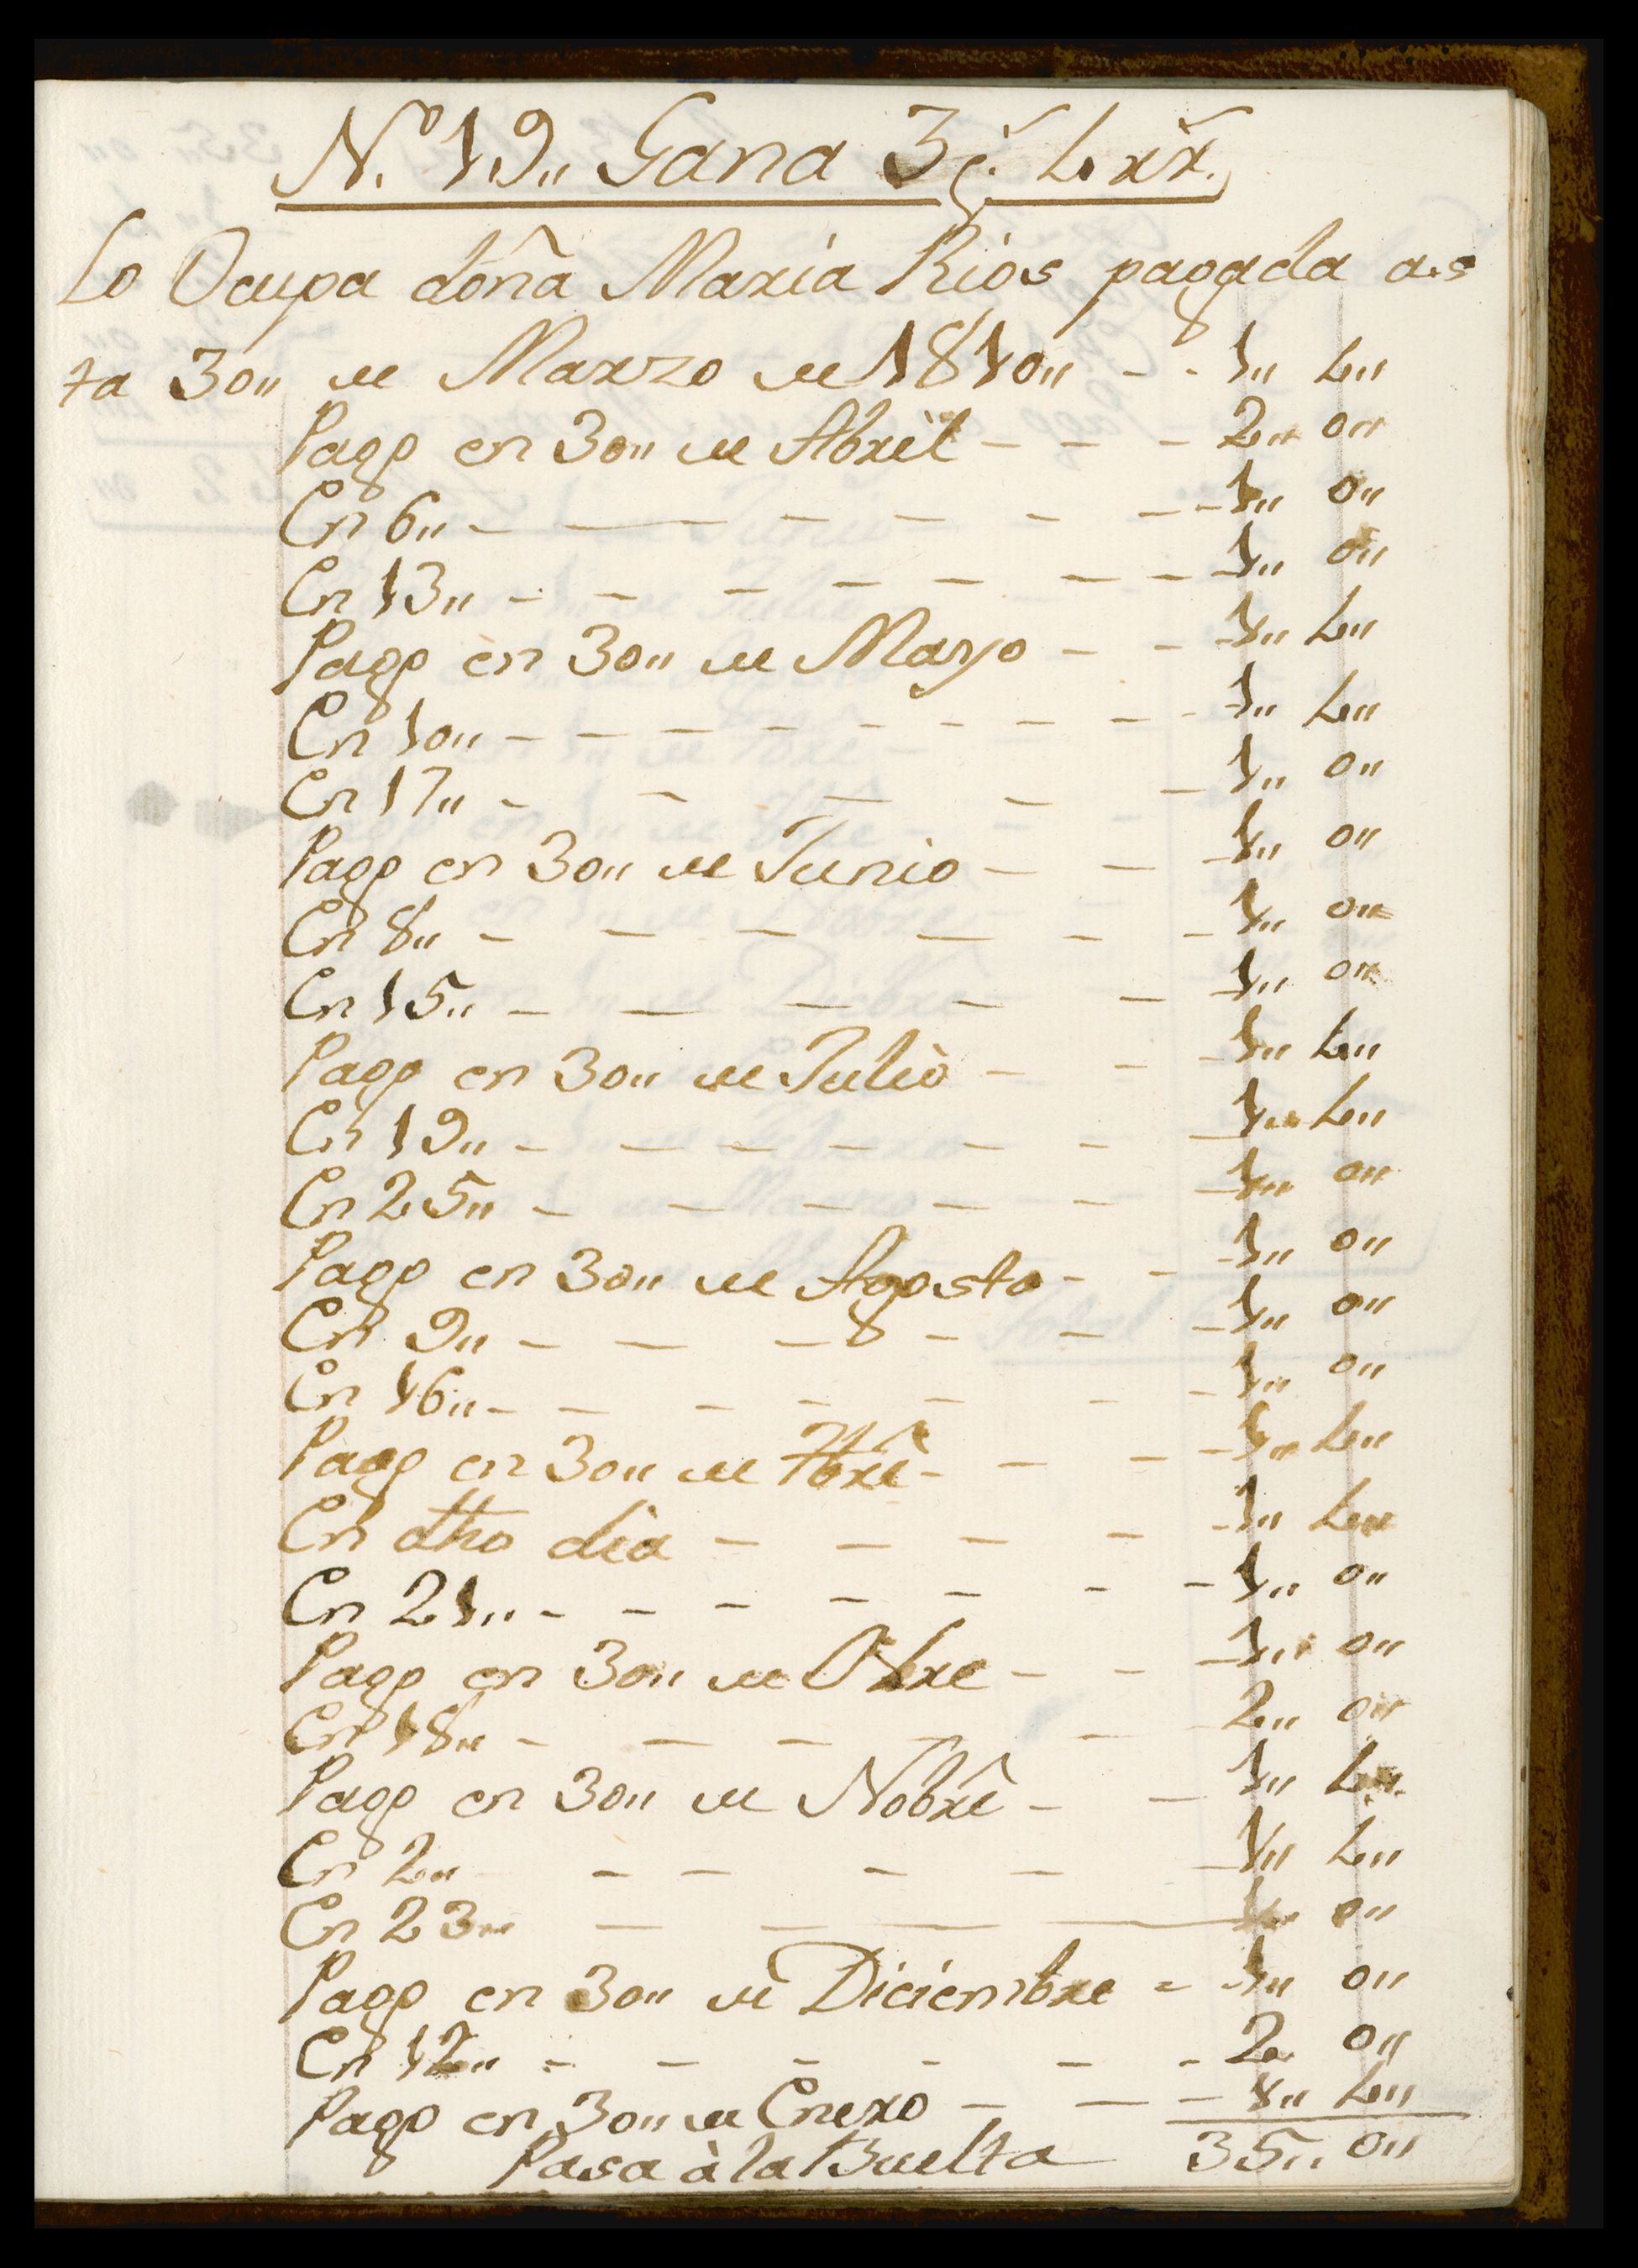 N.º 19,, Gana 3 p.ˢ 4 rrˢ.
Lo Ocupa doña Maria Rios pagada as
ta 30,, de Marzo de 1810,, - - 1,, 4,,
Pago en 30,, de Abril - - - 2,, 0,,
En 6,, - - - - - - - 1,, 0,,
En 13,, - - - - - - - - 1,, 0,,
Pago en 30,, de Mayo - - 1,, 4,,
En 10,, - - - - - - - - - 1,, 4,,
En 17,, - - - - - 1,, 0,,
Pago en 30,, de Junio - - - 1,, 0,,
En 8,, - - - - - - 1,, 0,,
En 15,, - - - - - - 1,, 0,,
Pago en 30,, de Julio - - - 1,, 4,,
En 19,, - - - - - - - 1,, 4,,
En 25,, - - - - - - 1,, 0,,
Pago en 30,, de Agosto - - - 1,, 0,,
En 9,, - - - - - - 1,, 0,,
En 16,, - - - - - - - 1,, 0,,
Pago en 30,, de 7bre - - - - 1,, 4,,
En otro dia - - - - - 1,, 4,,
En 21,, - - - - - - - 1,, 0,,
Pago en 30,, de Obre - - - 1,, 0,,
En 18,, - - - - - 2,, 0,,
Pago en 30,, de Nobre - - 1,, 4,,
En 2,, - - - - - 1,, 4,,
En 23,, - - - - 1,, 0,,
Pago en 30,, de Diciembre - - 1,, 0,,
En 12,, - - - - - - 2,, 0,,
Pago en 30,, de Enero - - - 1,, 4,,
Pasa à la Buelta 35,, 0,,